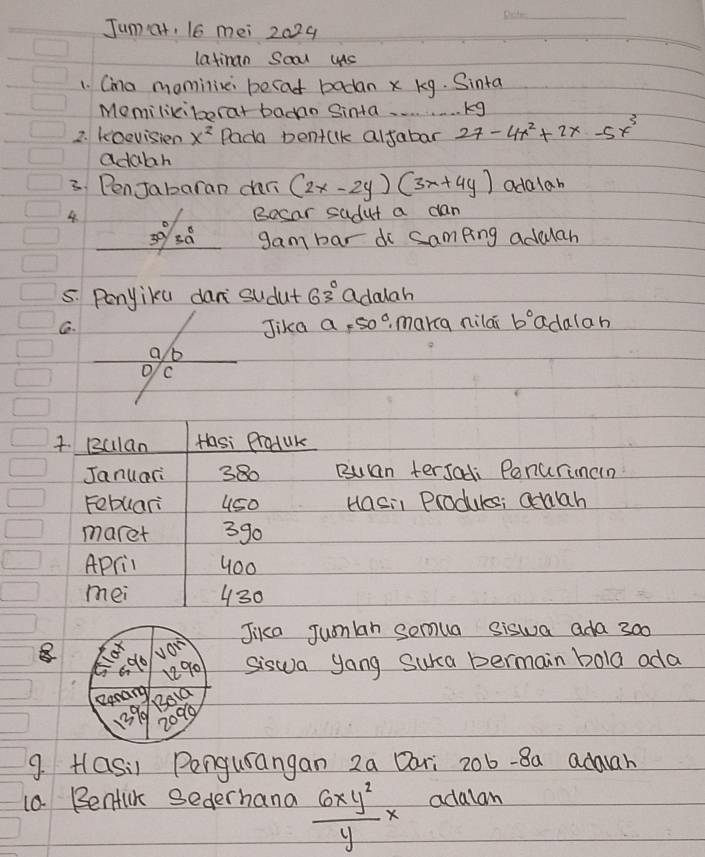 Jum'at, 16 mei 2024
latihan Soal UAS
1. Cina memiliki berat badan x kg. Sinta
Memiliki berat badan Sinta .......... kg
2. Koevisien x² Pada bentuk aljabar 27 - 4x² + 2x - 5x³
adalah
3. Penjabaran dari (2x - 2y) (3x + 4y) adalah
4. Besar sudut a dan
30° 30° gambar di samping adalah
5. Penyiku dari sudut 63° adalah
6. Jika a = 50°. maka nilai b° adalah
a b
D c
7. Bulan Hasi Produk
Januari 380 Bulan terjadi Penurunan
Febuari 450 Hasil Produksi adalah
maret 390
April 400
mei 430
8 Jika Jumlah semua siswa ada 300
Silat 5% Voli 12% siswa yang suka bermain bola ada
Renang 13% Bola 20%
9. Hasil Pengurangan 2a Dari 20b - 8a adalah
10. Bentuk Sederhana 6xy²/y x adalah